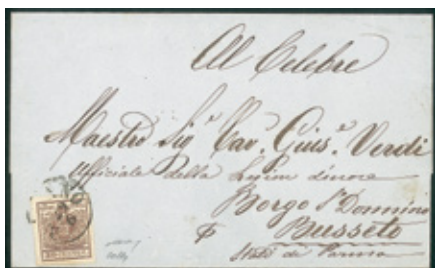 Al Celebre
Maestro Sig.r Cav. Gius.e Verdi
Ufficiale della Legion d'onore
Borgo S. Donnino
Busseto
Stato di Parma